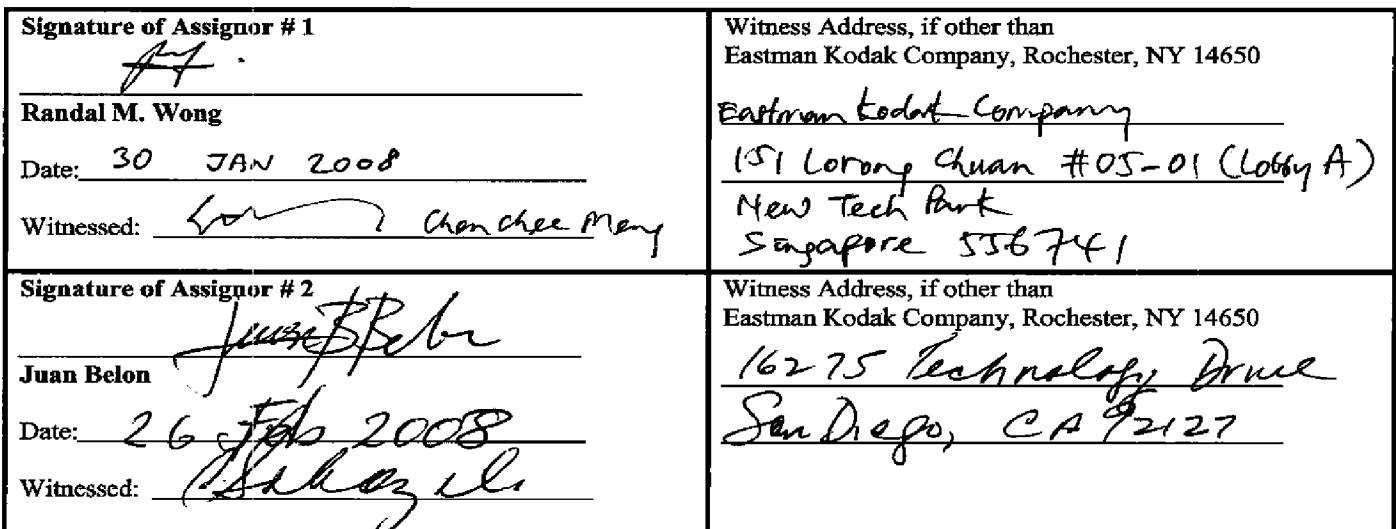 Signature of Assignor # 1
Randal M. Wong
Date: 30 JAN 2008
Witnessed: Chen Chee Meng
Witness Address, if other than
Eastman Kodak Company, Rochester, NY 14650
Eastman Kodak Company
151 Lorong Chuan #05-01 (Lobby A)
New Tech Park
Singapore 556741
Signature of Assignor # 2
Juan B Belon
Juan Belon
Date: 26 Feb 2008
Witnessed:
Witness Address, if other than
Eastman Kodak Company, Rochester, NY 14650
16275 Technology Drive
San Diego, CA 92127